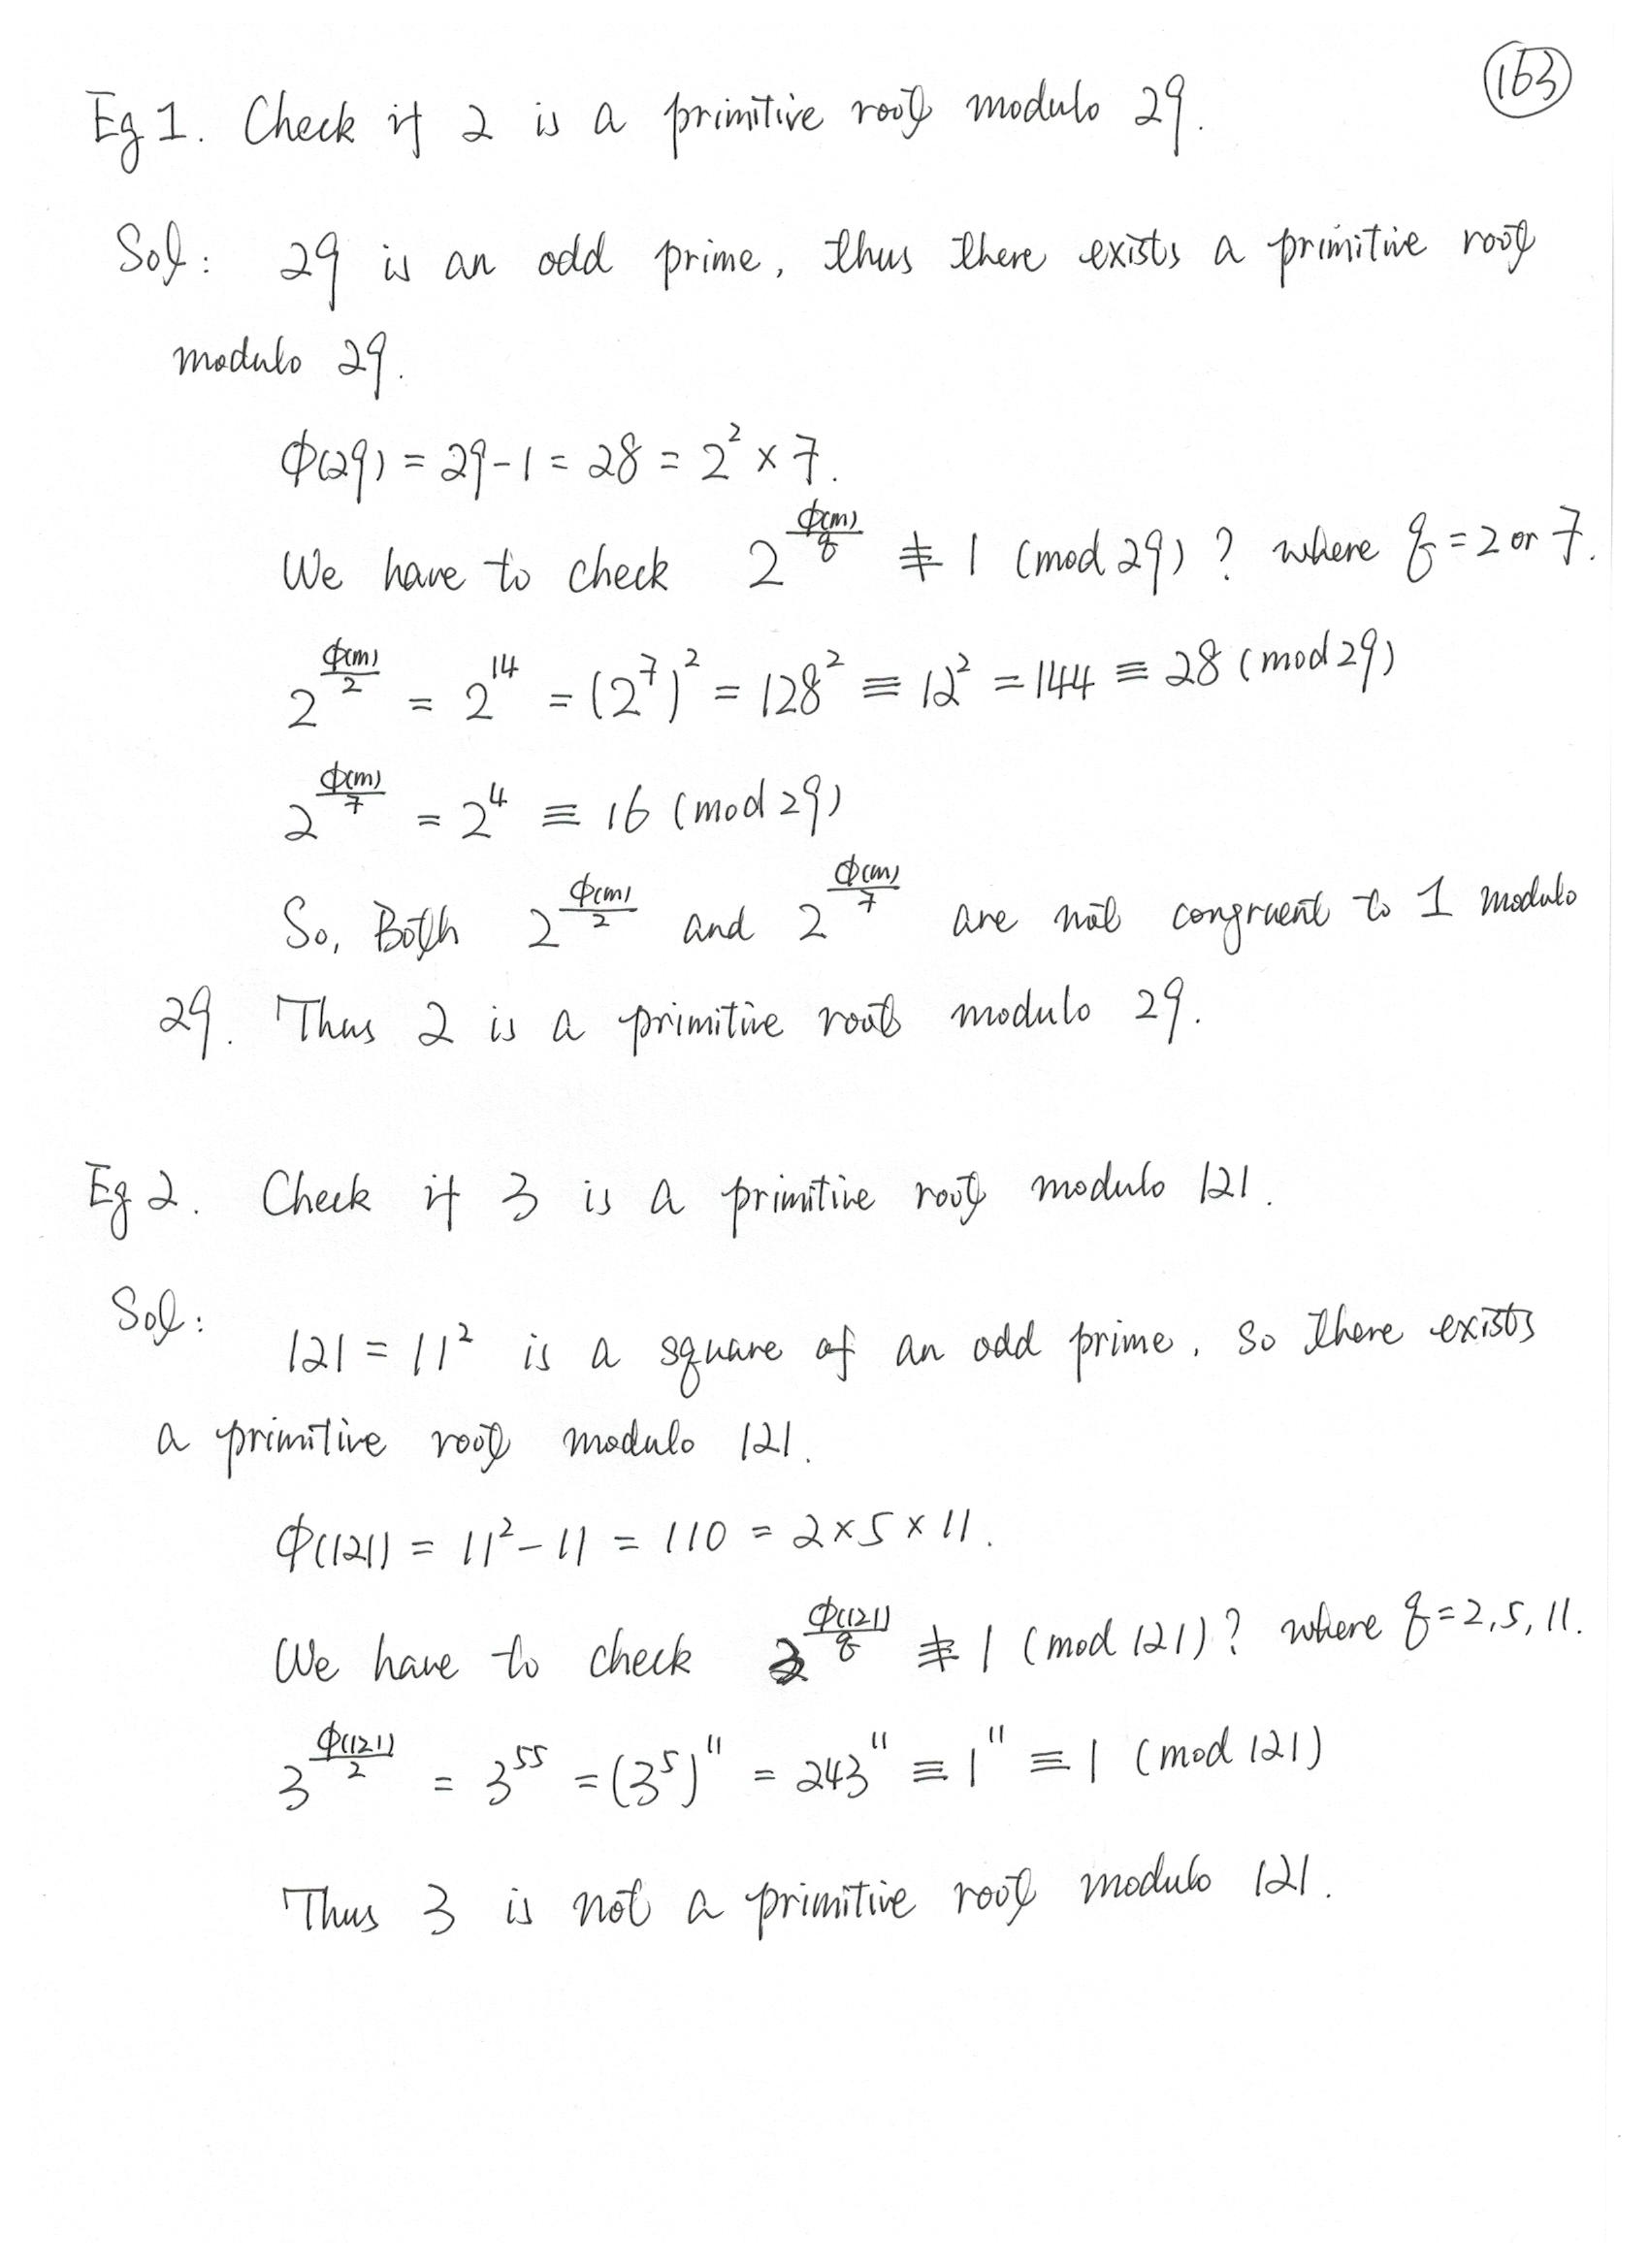 163
Eg 1. Check if 2 is a primitive root modulo 29.
Sol: 29 is an odd prime, thus there exists a primitive root
modulo 29.
ϕ(29) = 29-1 = 28 = 2² × 7.
We have to check 2^(ϕ(m)/q) ≢ 1 (mod 29)? where q = 2 or 7.
2^(ϕ(m)/2) = 2^14 = (2^7)^2 = 128² ≡ 12² = 144 ≡ 28 (mod 29)
2^(ϕ(m)/7) = 2^4 ≡ 16 (mod 29)
So, Both 2^(ϕ(m)/2) and 2^(ϕ(m)/7) are not congruent to 1 modulo
29. Thus 2 is a primitive root modulo 29.
Eg 2. Check if 3 is a primitive root modulo 121.
Sol:
121 = 11² is a square of an odd prime, so there exists
a primitive root modulo 121.
ϕ(121) = 11² - 11 = 110 = 2 × 5 × 11.
We have to check 3^(ϕ(121)/q) ≢ 1 (mod 121)? where q = 2, 5, 11.
3^(ϕ(121)/2) = 3^55 = (3^5)^11 = 243^11 ≡ 1^11 ≡ 1 (mod 121)
Thus 3 is not a primitive root modulo 121.